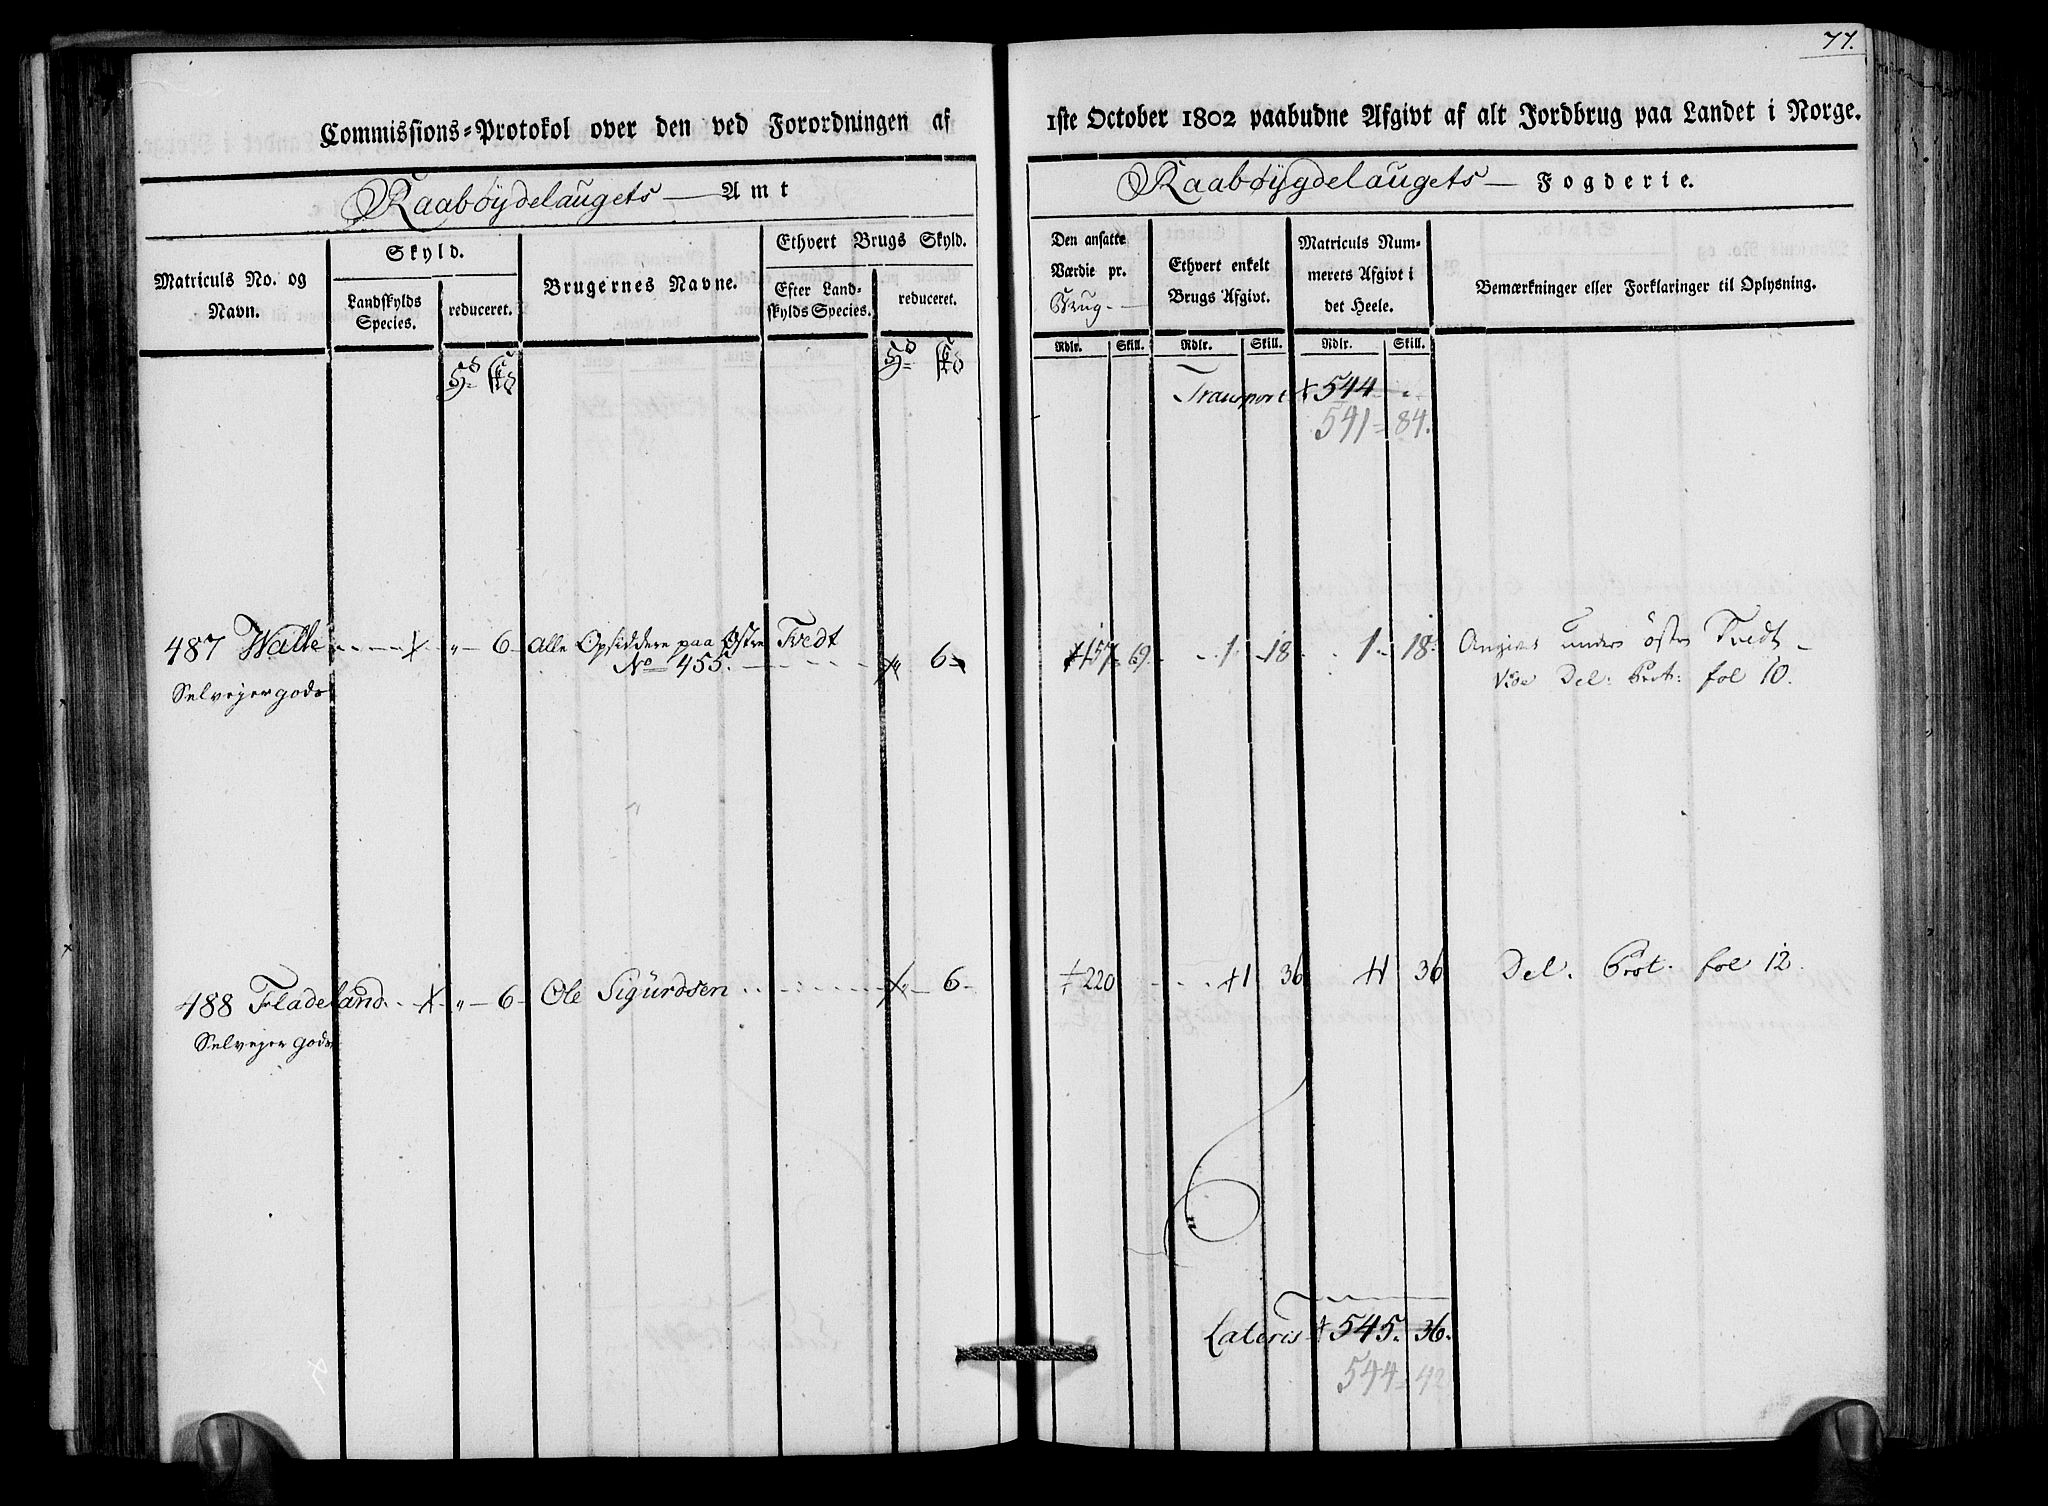 77.
Commissions-Protokol over den ved Forordningen af 1ste October 1802 paabudne Afgivt af alt Jordbrug paa Landet i Norge.
Raabøydelaugets Amt
Raabøygdelaugets Fogderie.
Matriculs No. og Navn.
Skyld.
Landskylds Species.
reduceret.
Brugernes Navne.
Ethvert Brugs Skyld.
Efter Landskylds Species.
reduceret.
Den ansatte Værdie pr. Brug
Ethvert enkelt Brugs Afgivt.
Matriculs Nummerets Afgivt i det Heele.
Bemærkninger eller Forklaringer til Oplysning.
Rdlr. Skill. Rdlr. Skill. Rdlr. Skill.
Transport 544
541 = 84.
487 Walle 〃 6 Alle Opsiddere paa Østre Tvedt 〃 6 157 69 1 18 1 18 Angives under østre Tvedt
Selvejergods No 455. Vide Del: Prot: fol 10.
488 Fladeland 〃 6 Ole Sigurdsen 〃 6 220 1 36 1 36 Del. Prot. fol 12.
Selvejer gods
Lateris 545. 36.
544 = 42